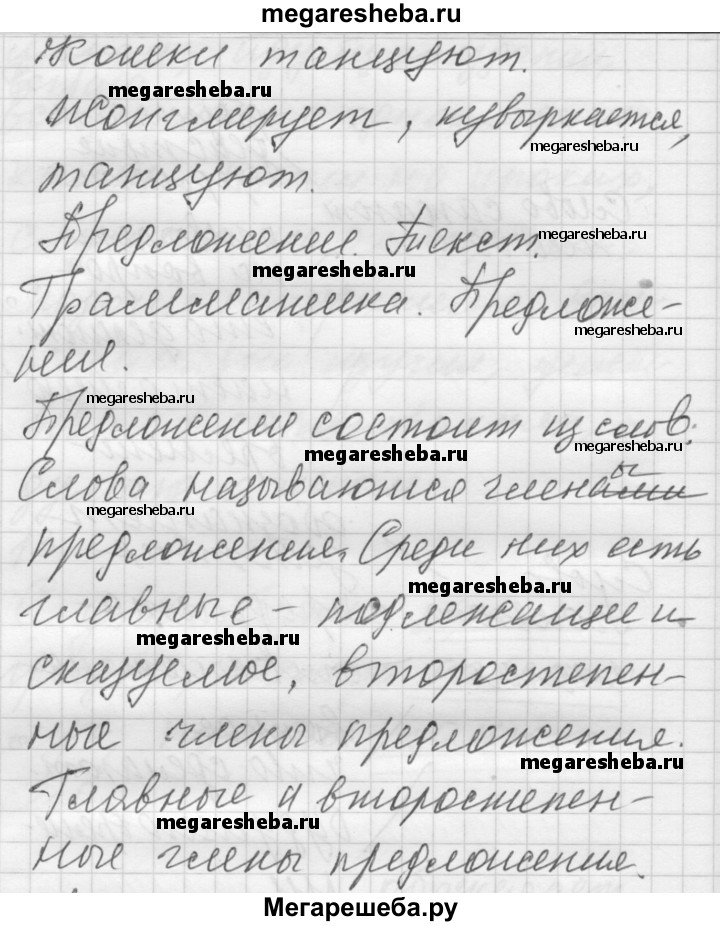 megaresheba.ru
Кошки танцуют.
megaresheba.ru
Жонглирует, кувыркается,
megaresheba.ru
танцуют.
Предложение. Текст.
megaresheba.ru
megaresheba.ru
Грамматика. Предложе-
megaresheba.ru
ние.
megaresheba.ru
Предложение состоит из слов.
megaresheba.ru
megaresheba.ru
Слова называются членами ы
megaresheba.ru
предложения. Среди них есть
megaresheba.ru
главные - подлежащее и
megaresheba.ru
сказуемое, второстепен-
ные члены предложения.
megaresheba.ru
Главные и второстепен-
megaresheba.ru
ные члены предложения.
Мегарешеба.ру